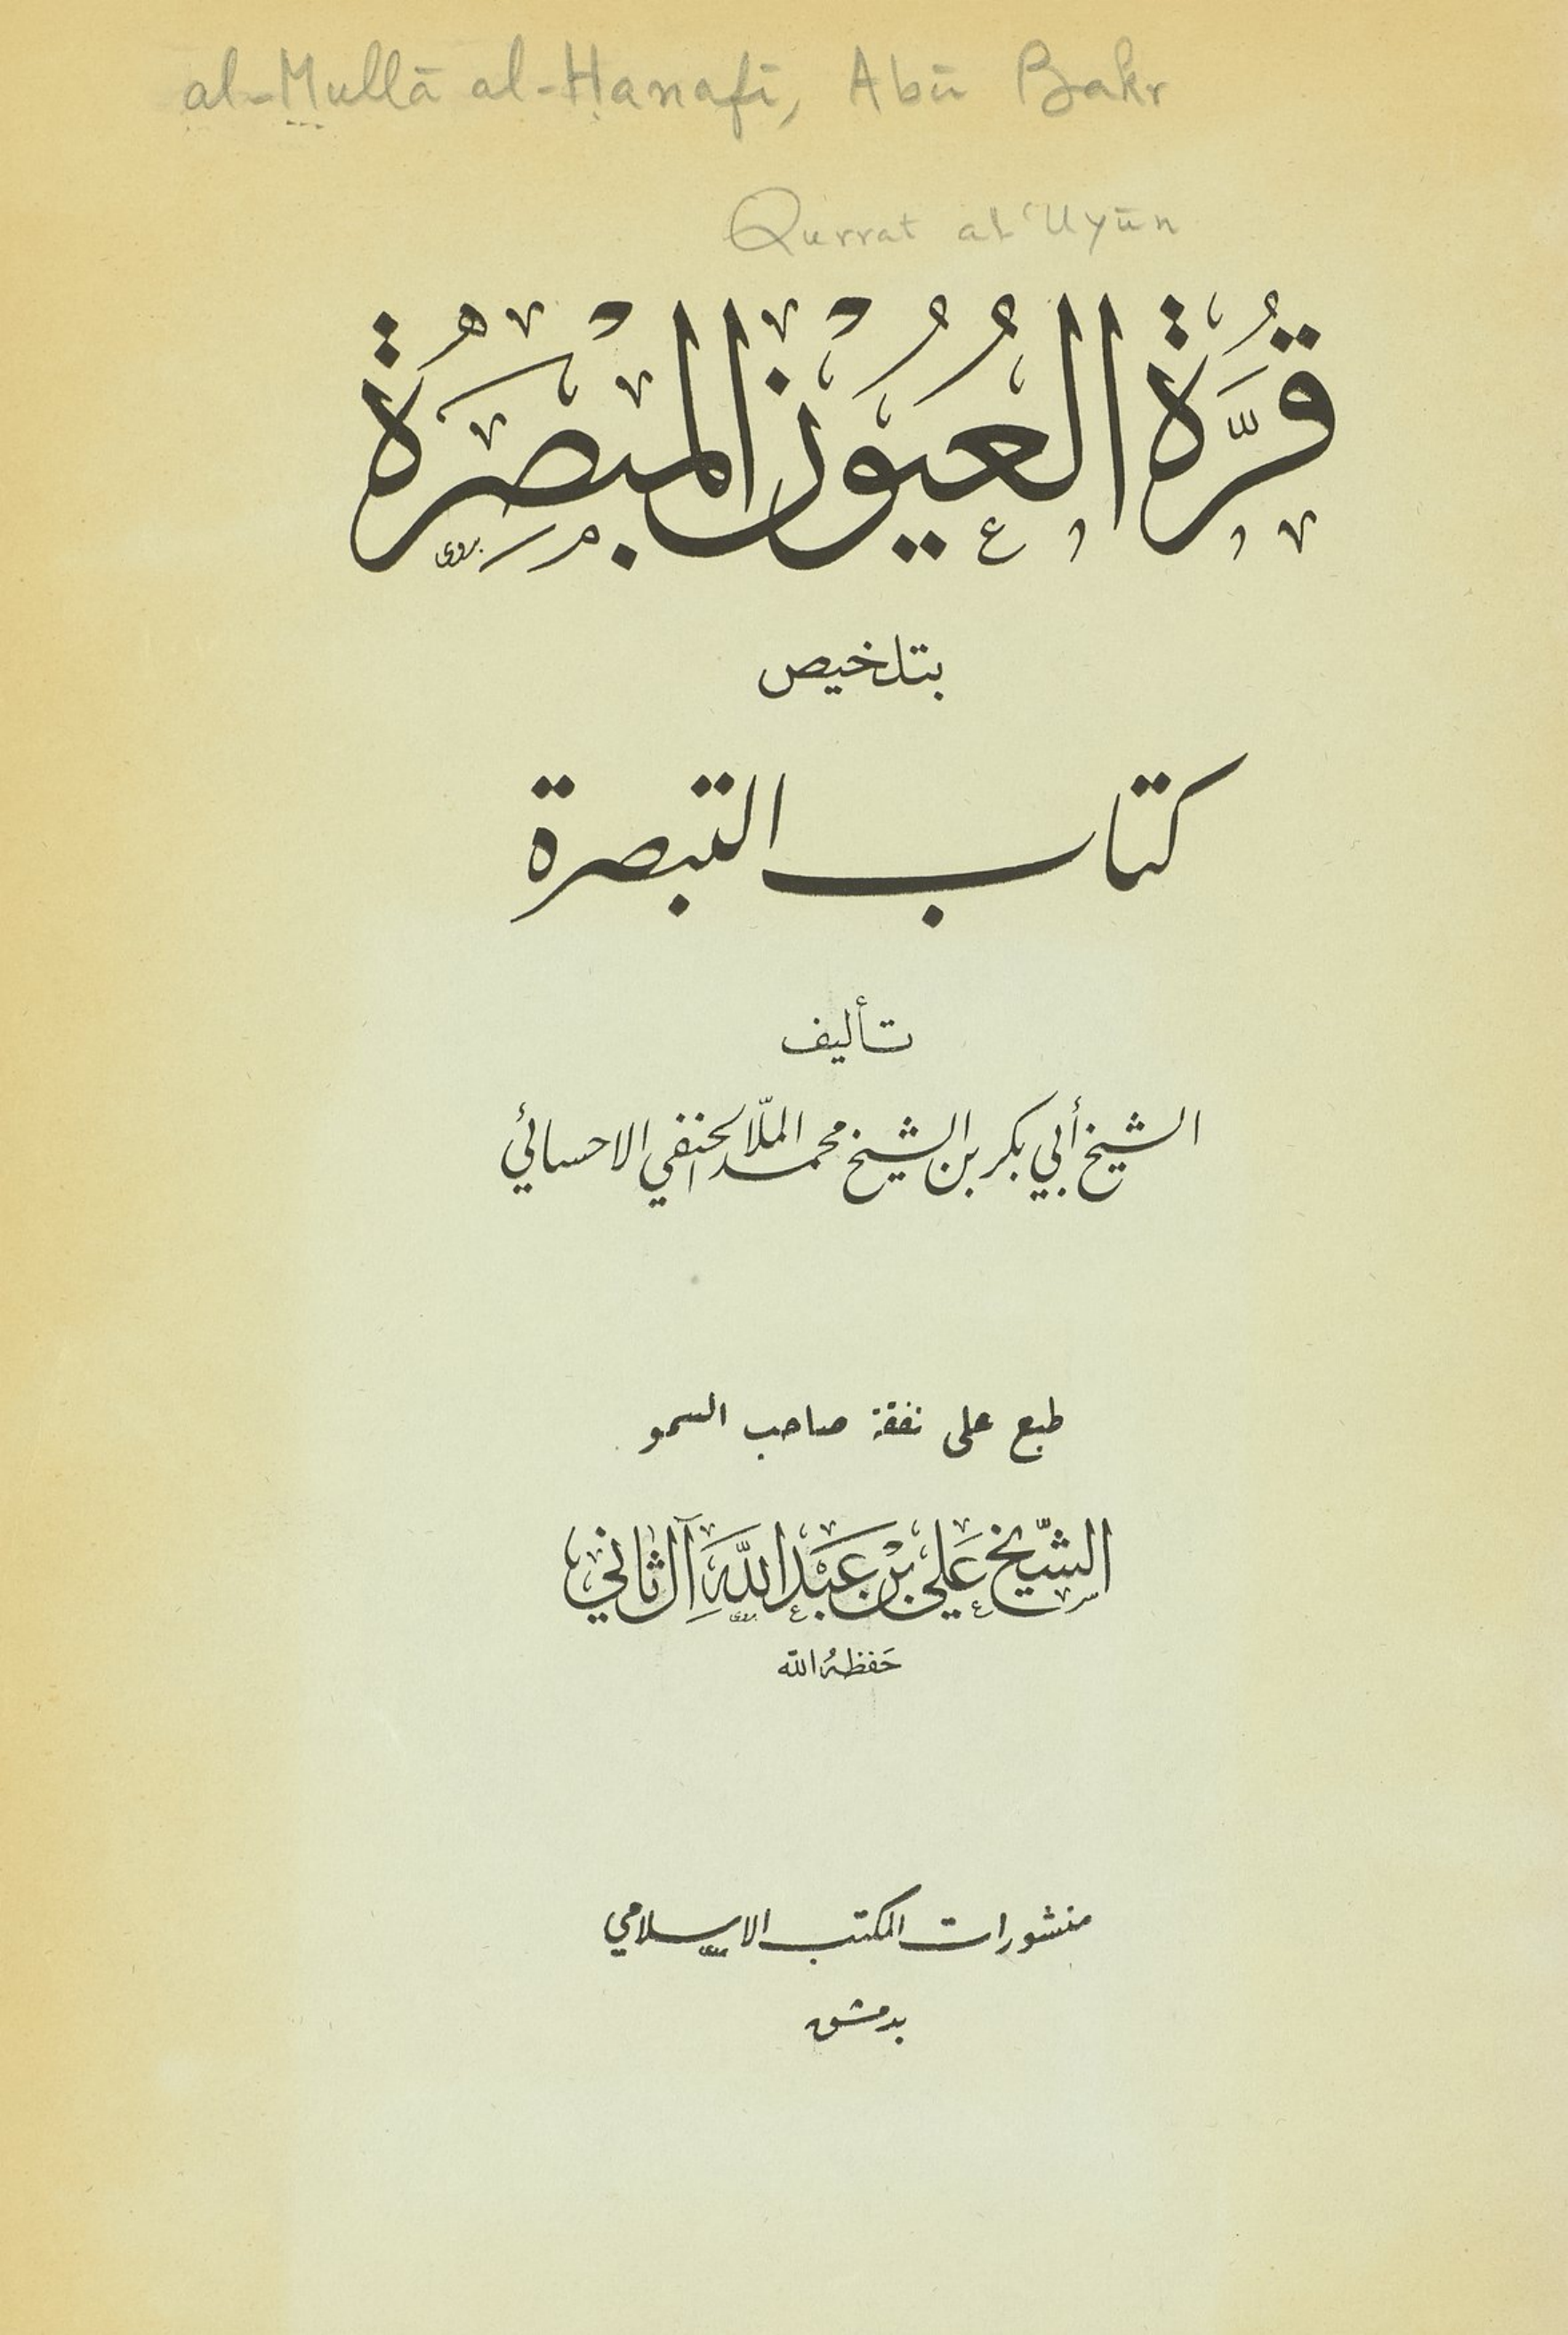 al-Mullā al-Ḥanafī, Abū Bakr
Qurrat al-ʿUyūn
قُرَّةُ العُيُوْنِ المُبْصِرَةُ
بتلخيص
كتاب التبصرة
تأليف
الشيخ أبي بكر بن الشيخ محمد الملّا الحنفي الاحسائي
طبع على نفقة صاحب السمو
الشّيخ عَلي بْن عَبْد اللَّه آل ثاني
حَفظهُ الله
منشورات المكتب الاسلامي
بدمشق